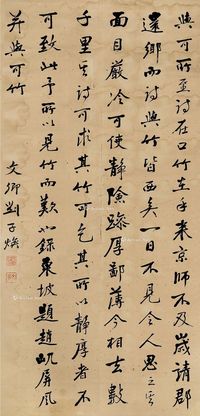 與可所至詩在口竹在手來京師不及歲請郡
還鄉而詩與竹皆西矣一日不見令人思之其
面目嚴冷可使靜險躁厚鄙薄今相去數
千里其詩可求其竹可乞其所以靜厚者不
可致此予所以見竹而歎也錄東坡題趙屼屏風
并與可竹 文卿劉子煥